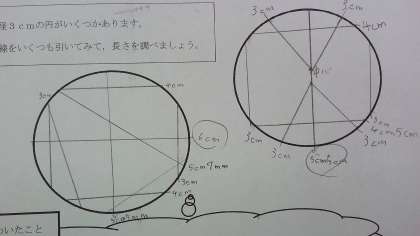 径3cmの円がいくつかあります。
線をいくつも引いてみて、長さを調べましょう。
3cm
3cm
4cm
中心
3cm
4cm
6cm
5cm7mm
3cm
4cm
3cm
3cm
3cm
4cm5cm
3cm
いたこと